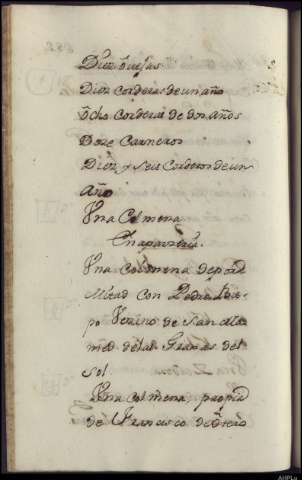 Diez Ovejas
Diez Corderas de un año
Ocho Corderas de dos años
Doze Carneros
Diez y seis Corderos de un
Año
Una Colmena
En aparzeria
Una colmena de por
Mitad con Pedro
po Vezino de San
med de las Granas del
Sol
Una colmena propia
de Francisco de
AHPLu